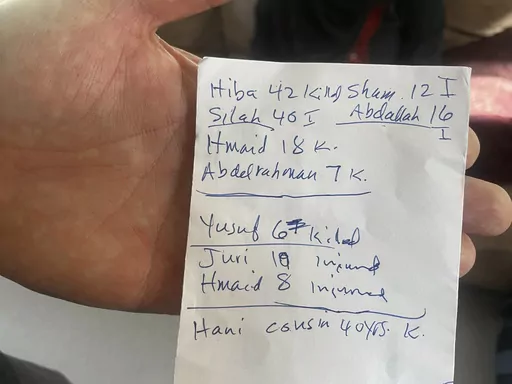 Hiba 42 Killd Sham. 12 I
Silah 40 I Abdallah 16 I
Hmaid 18 K.
Abdelrahman 7 K.
Yusuf 6 Killed
Juri injured
Hmaid 8 injured
Hani cousin 40yrs. K.